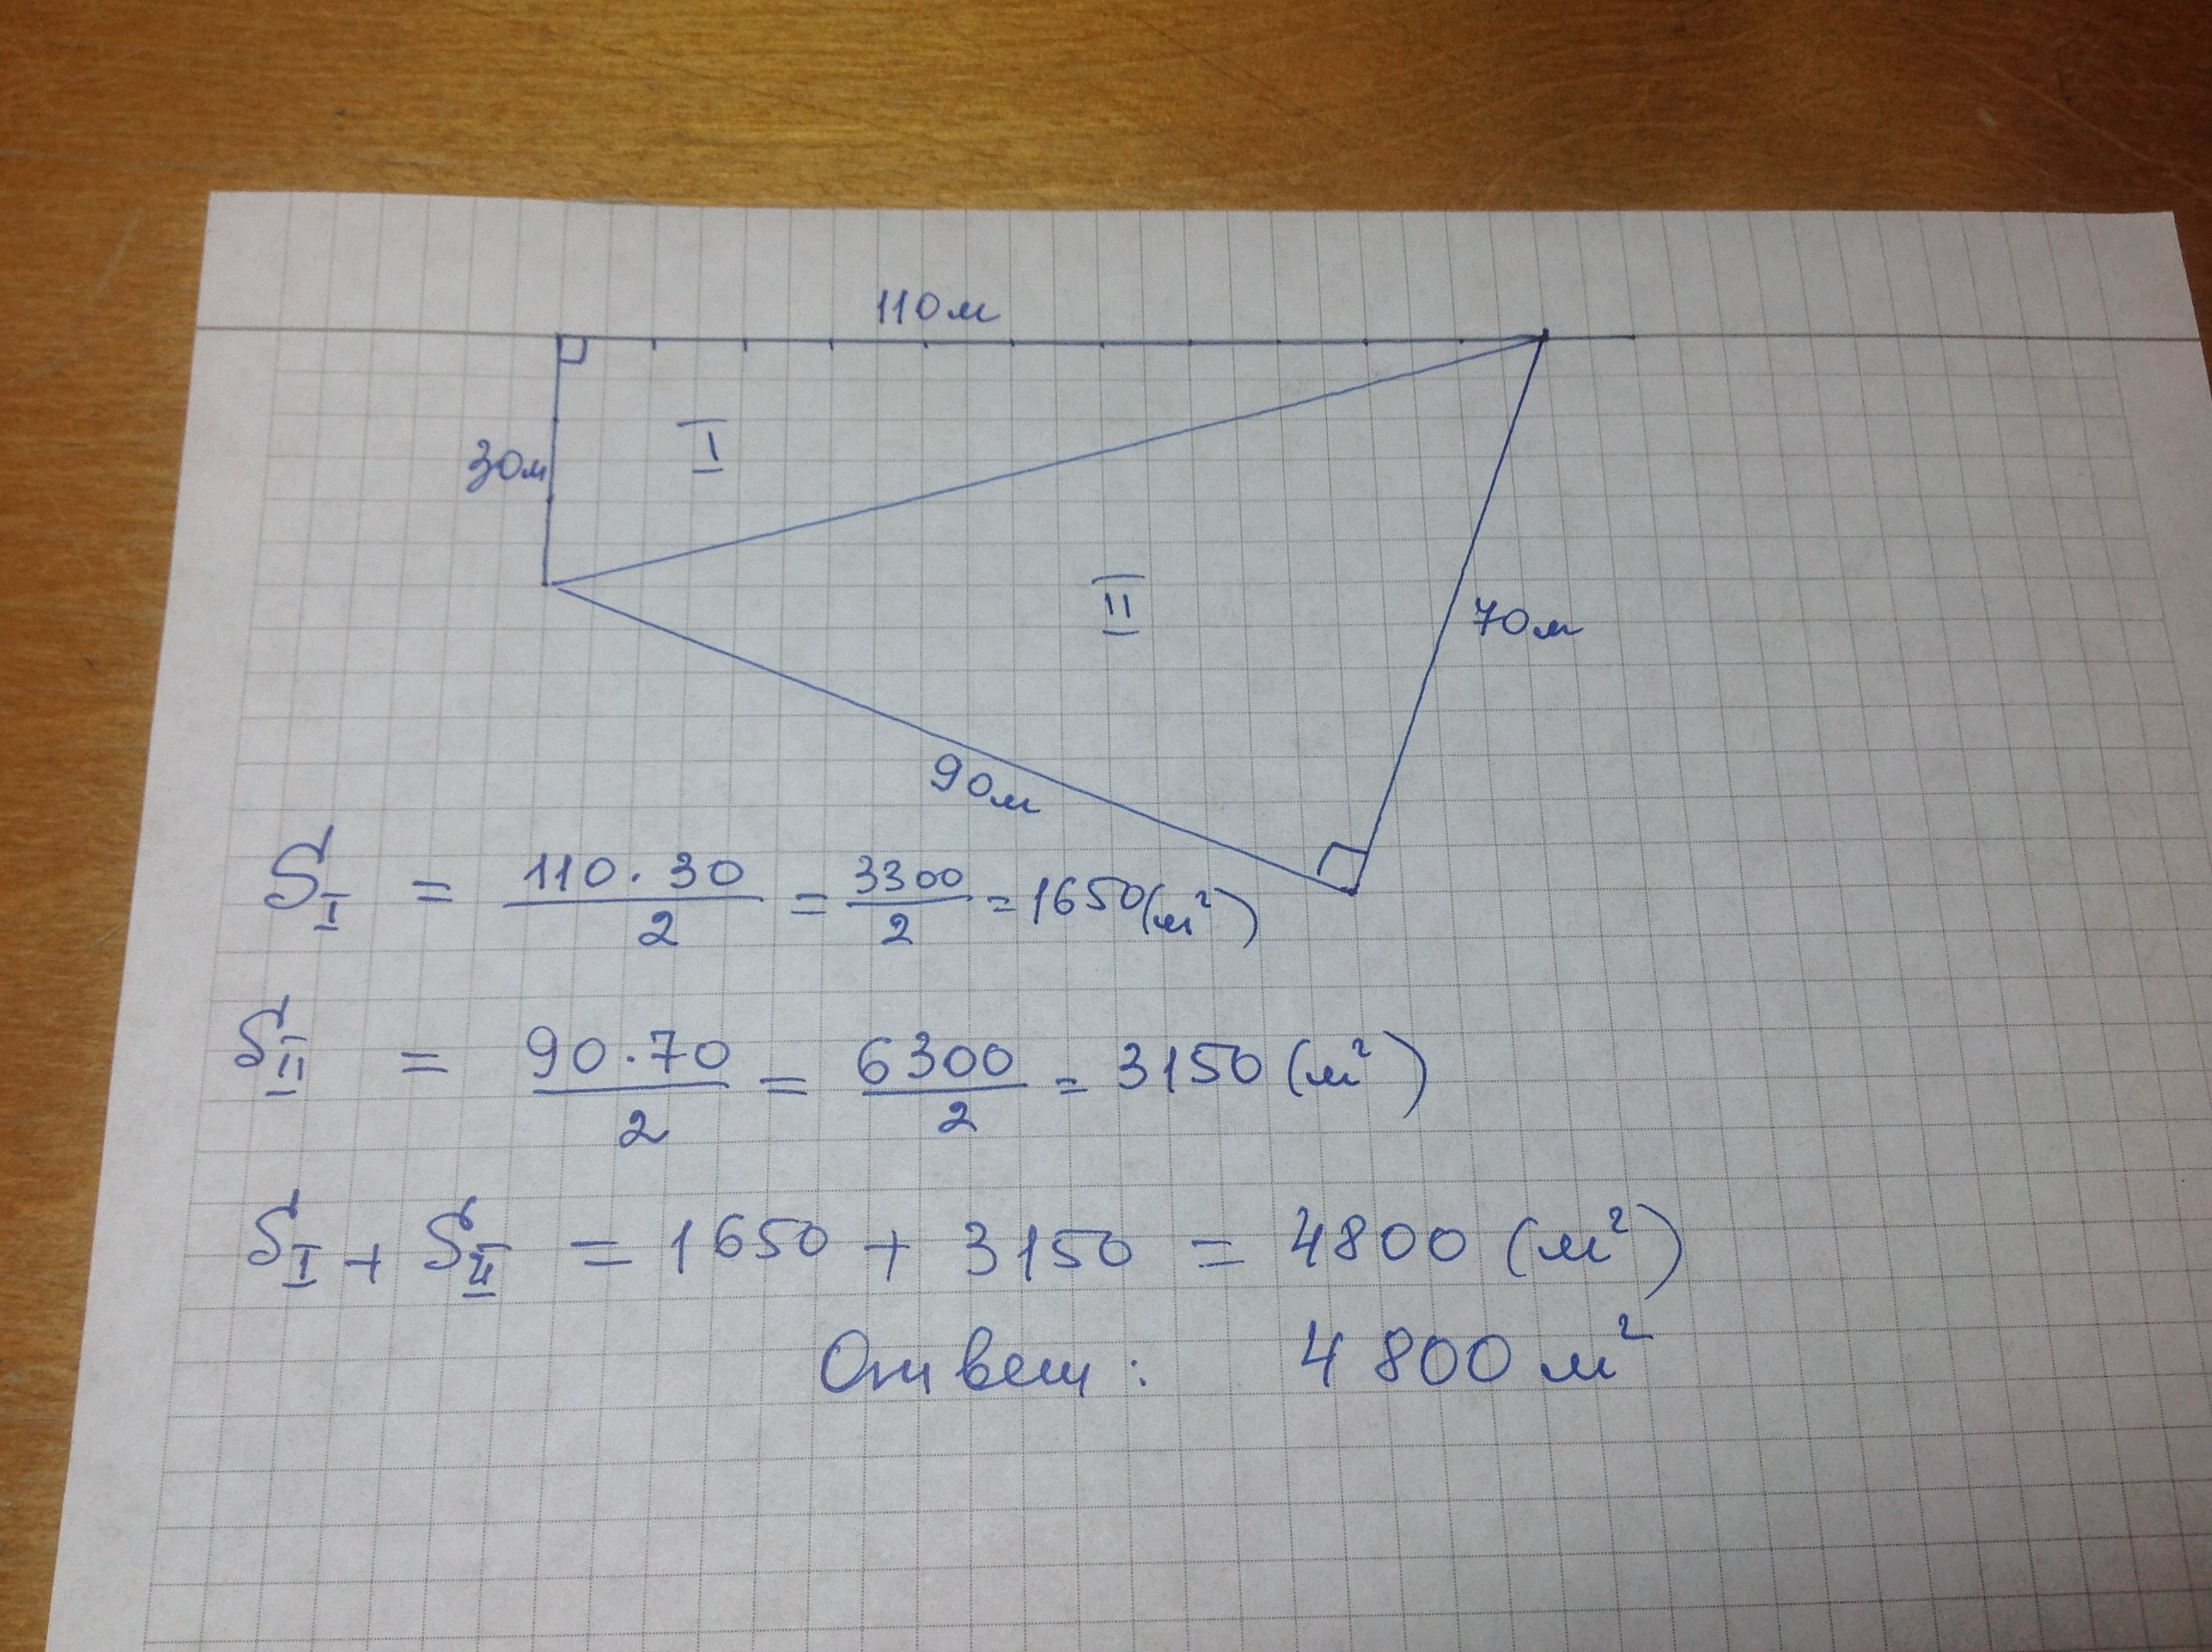 110м
I
30м
II
70м
90м
S_I = 110·30/2 = 3300/2 = 1650(м²)
S_II = 90·70/2 = 6300/2 = 3150 (м²)
S_I + S_II = 1650 + 3150 = 4800 (м²)
Ответ: 4800 м²